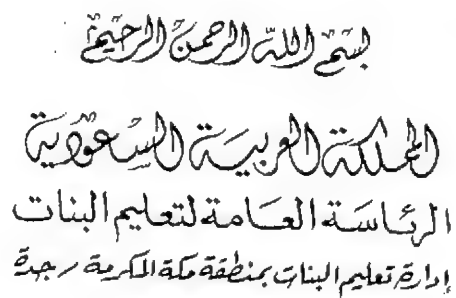 بسم الله الرحمن الرحيم
المملكة العربية السعودية
الرئاسة العامة لتعليم البنات
إدارة تعليم البنات بمنطقة مكة المكرمة / جدة